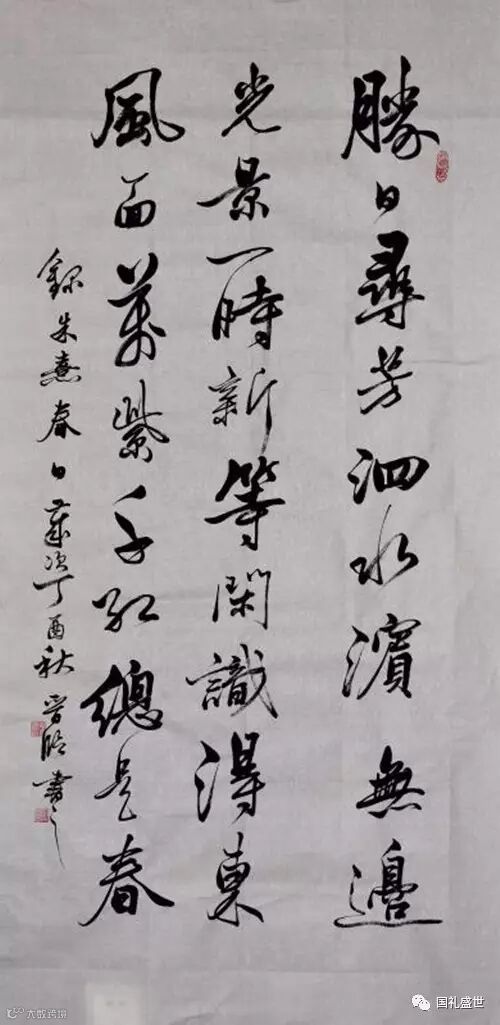 勝日尋芳泗水濱無邊
光景一時新等閑識得東
風面萬紫千紅總是春
錄朱熹春日歲次丁酉秋晉明書之
大数跨境
国礼盛世